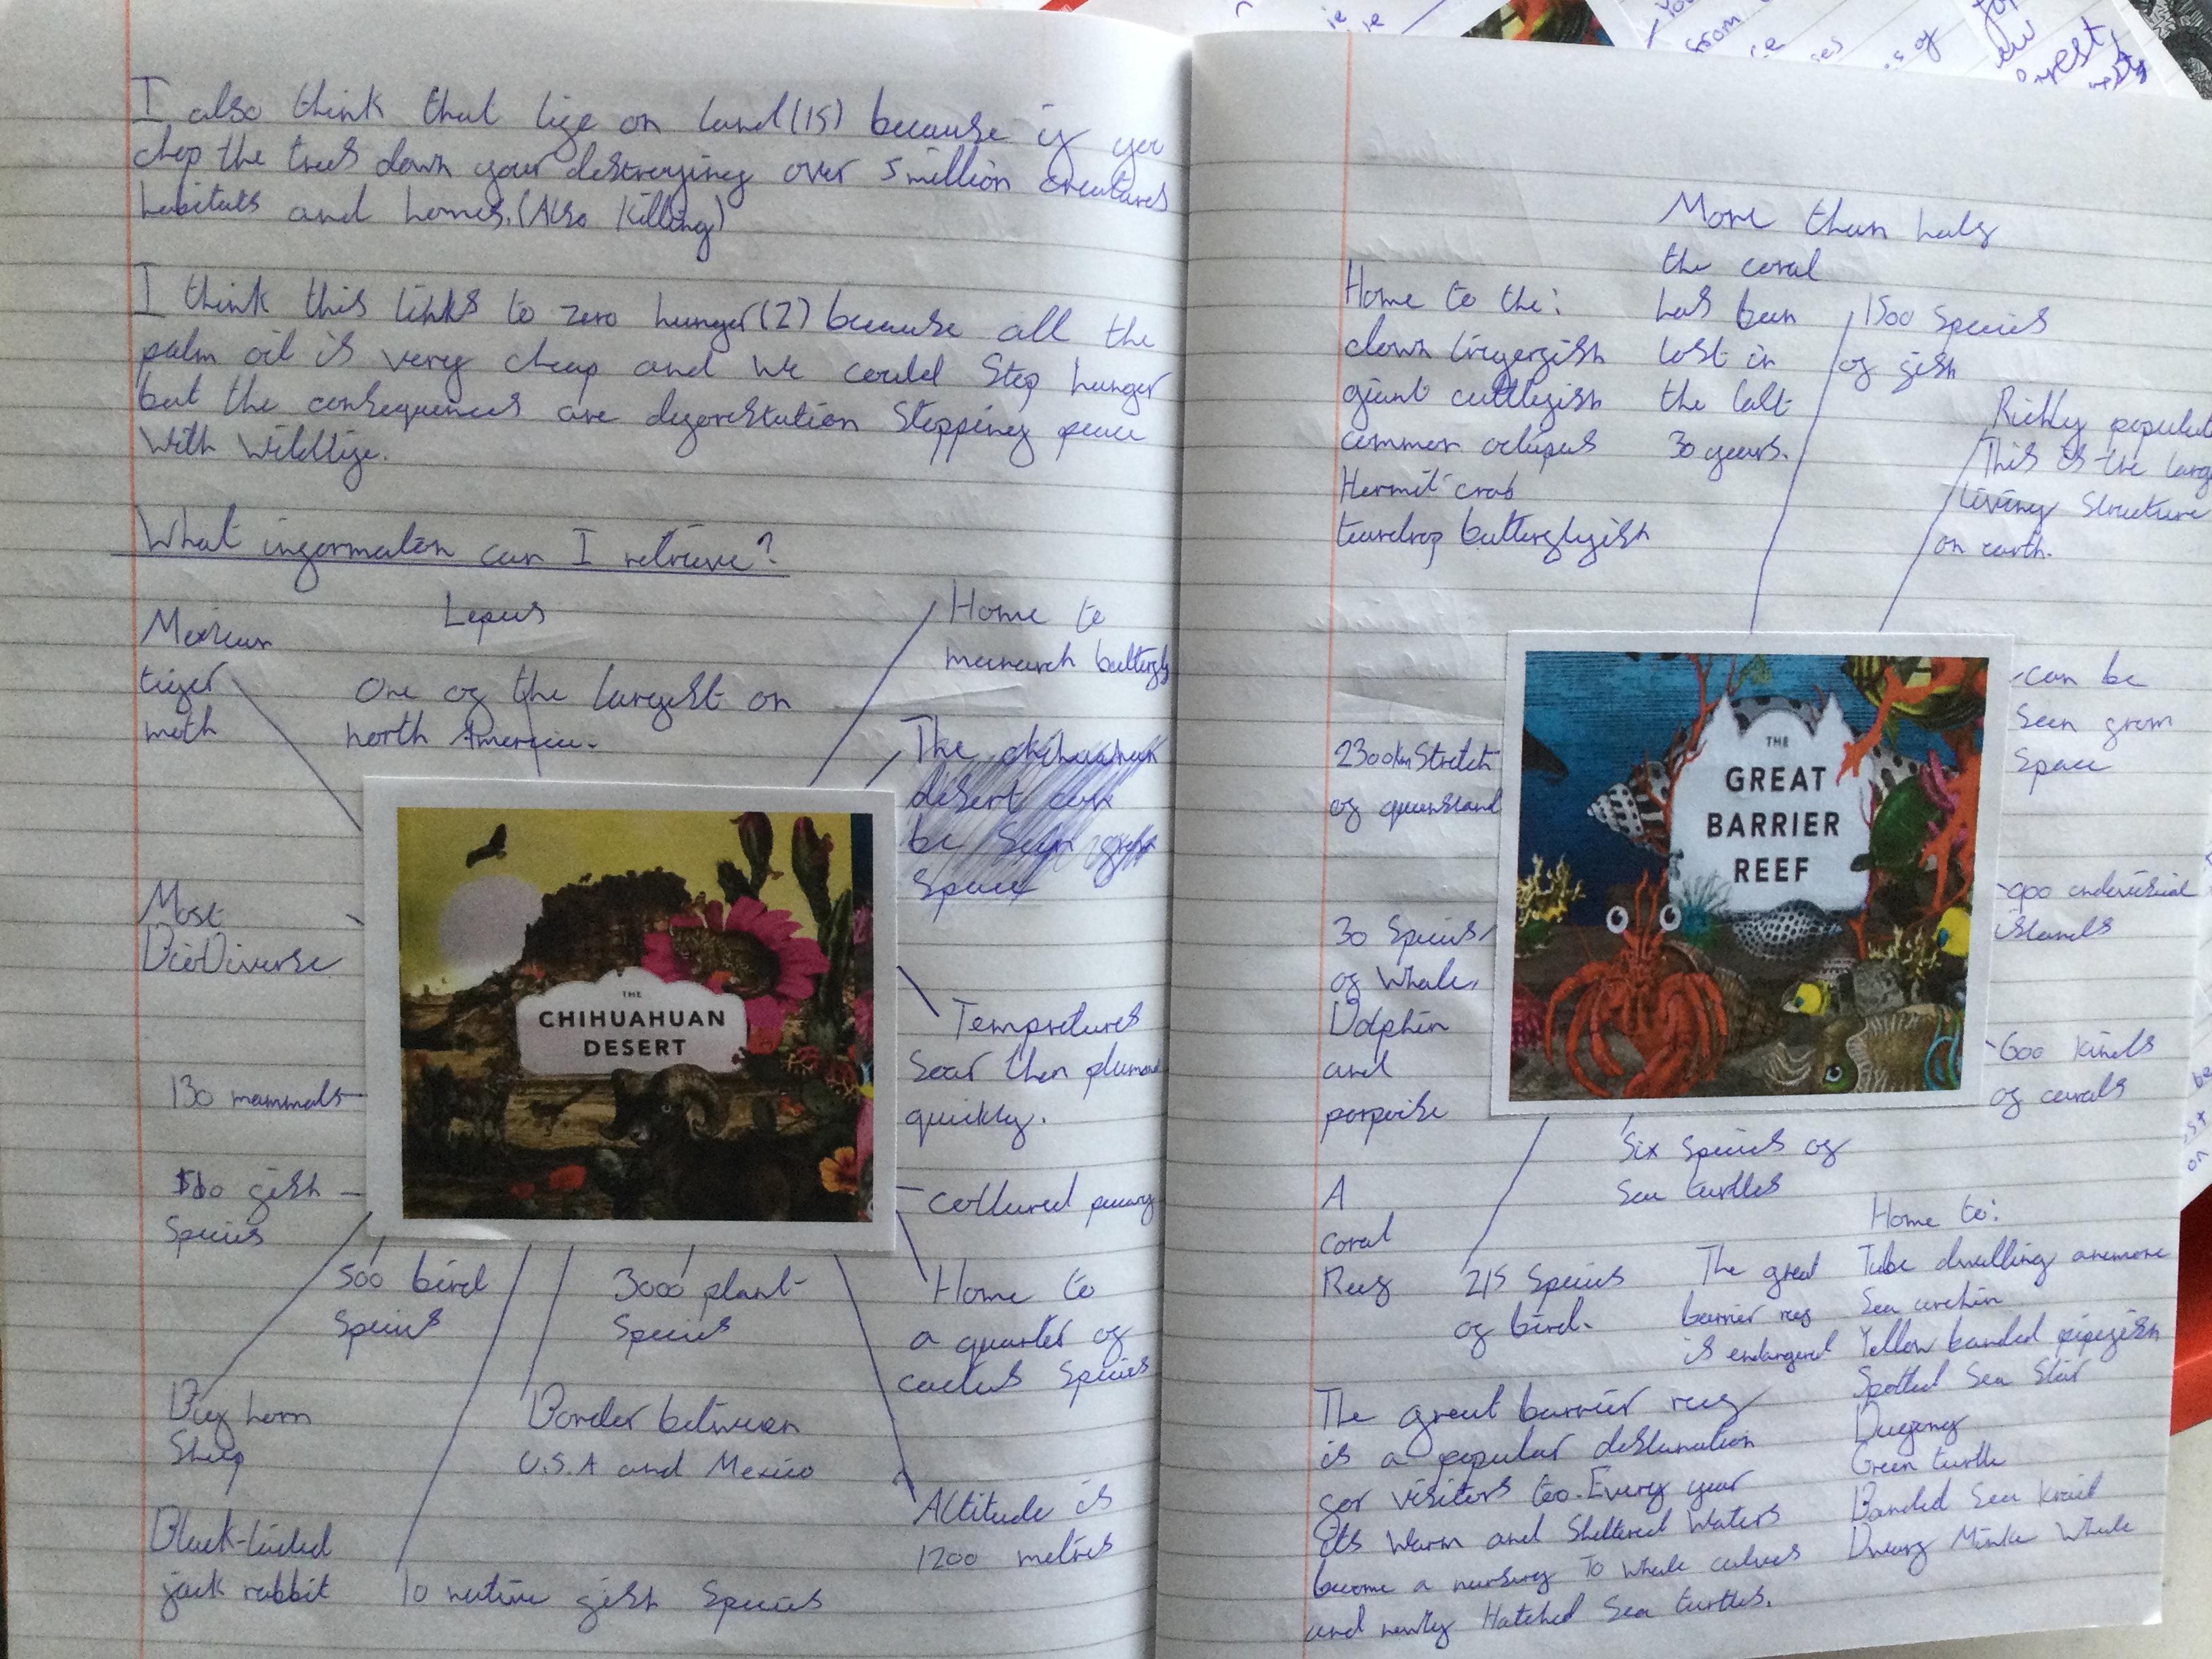 I also think that life on land (15) because if you
chop the trees down your destroying over 5 million creatures
habitats and homes. (Also killing)
I think this links to zero hunger (2) because all the
palm oil is very cheap and we could Stop hunger
but the consequences are deforestation Stopping peace
with wildlife.
What information can I retrieve?
Mexican
tiger
moth
Lepus
One of the largest on
north America.
Home to
monarch butterfly
The chihuahuan
desert can
be seen from
Space
Most
BioDiverse
THE
CHIHUAHUAN
DESERT
Tempretures
Soar then plument
quickly.
130 mammals
fish
Species
collared
500 bird
Species
3000 plant
Species
Home to
a quarter of
cactus Species
Big horn
Sheep
Border between
U.S.A and Mexico
Altitude is
1200 metres
Black-tailed
jack rabbit
10 native fish Species
More than half
the coral
has been
lost in
the last
30 years.
Home to the:
clown triggerfish
giant cuttlefish
common octupus
Hermit crab
teardrop butterflyfish
1500 Species
of fish
Richly
This is the
living Structure
on earth.
can be
Seen from
Space
2300km Stretch
of queensland
THE
GREAT
BARRIER
REEF
900
islands
30 Species
of Whale,
Dolphin
and
porpoise
600 kinds
of corals
A
coral
Reef
Six Species of
Sea turtles
215 Species
of bird.
The great
barrier reef
is endangered
Home to:
Tube dwelling anemone
Sea urchin
Yellow banded pipefish
Spotted Sea Star
Dugong
Green turtle
Banded Sea Krait
Dwarf Minke Whale
The great barrier reef
is a popular destination
for visitors too. Every year
its warm and Sheltered Waters
become a nursery To whale calves
and newly Hatched Sea turtles.